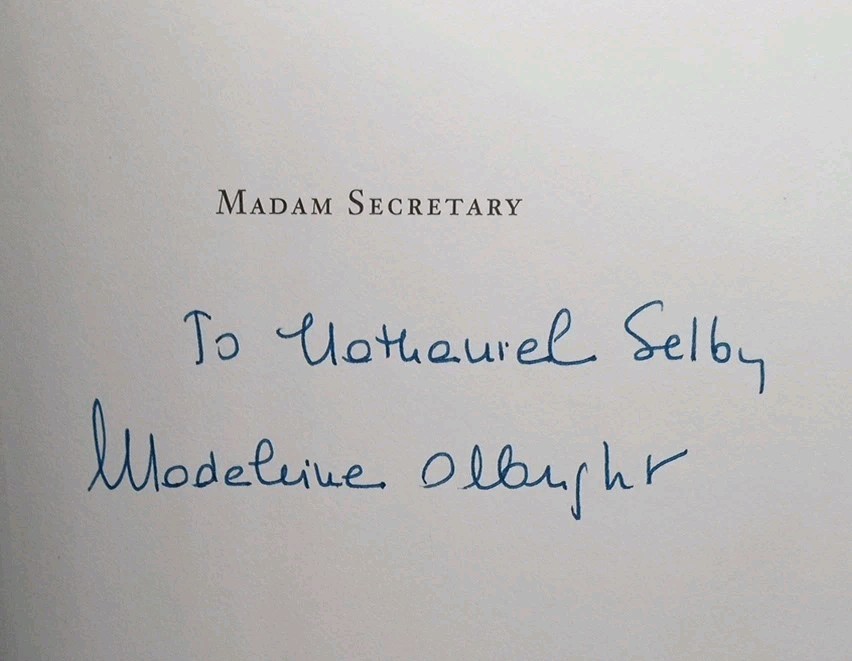 MADAM SECRETARY
To Nathaniel Selby
Madeleine Albright